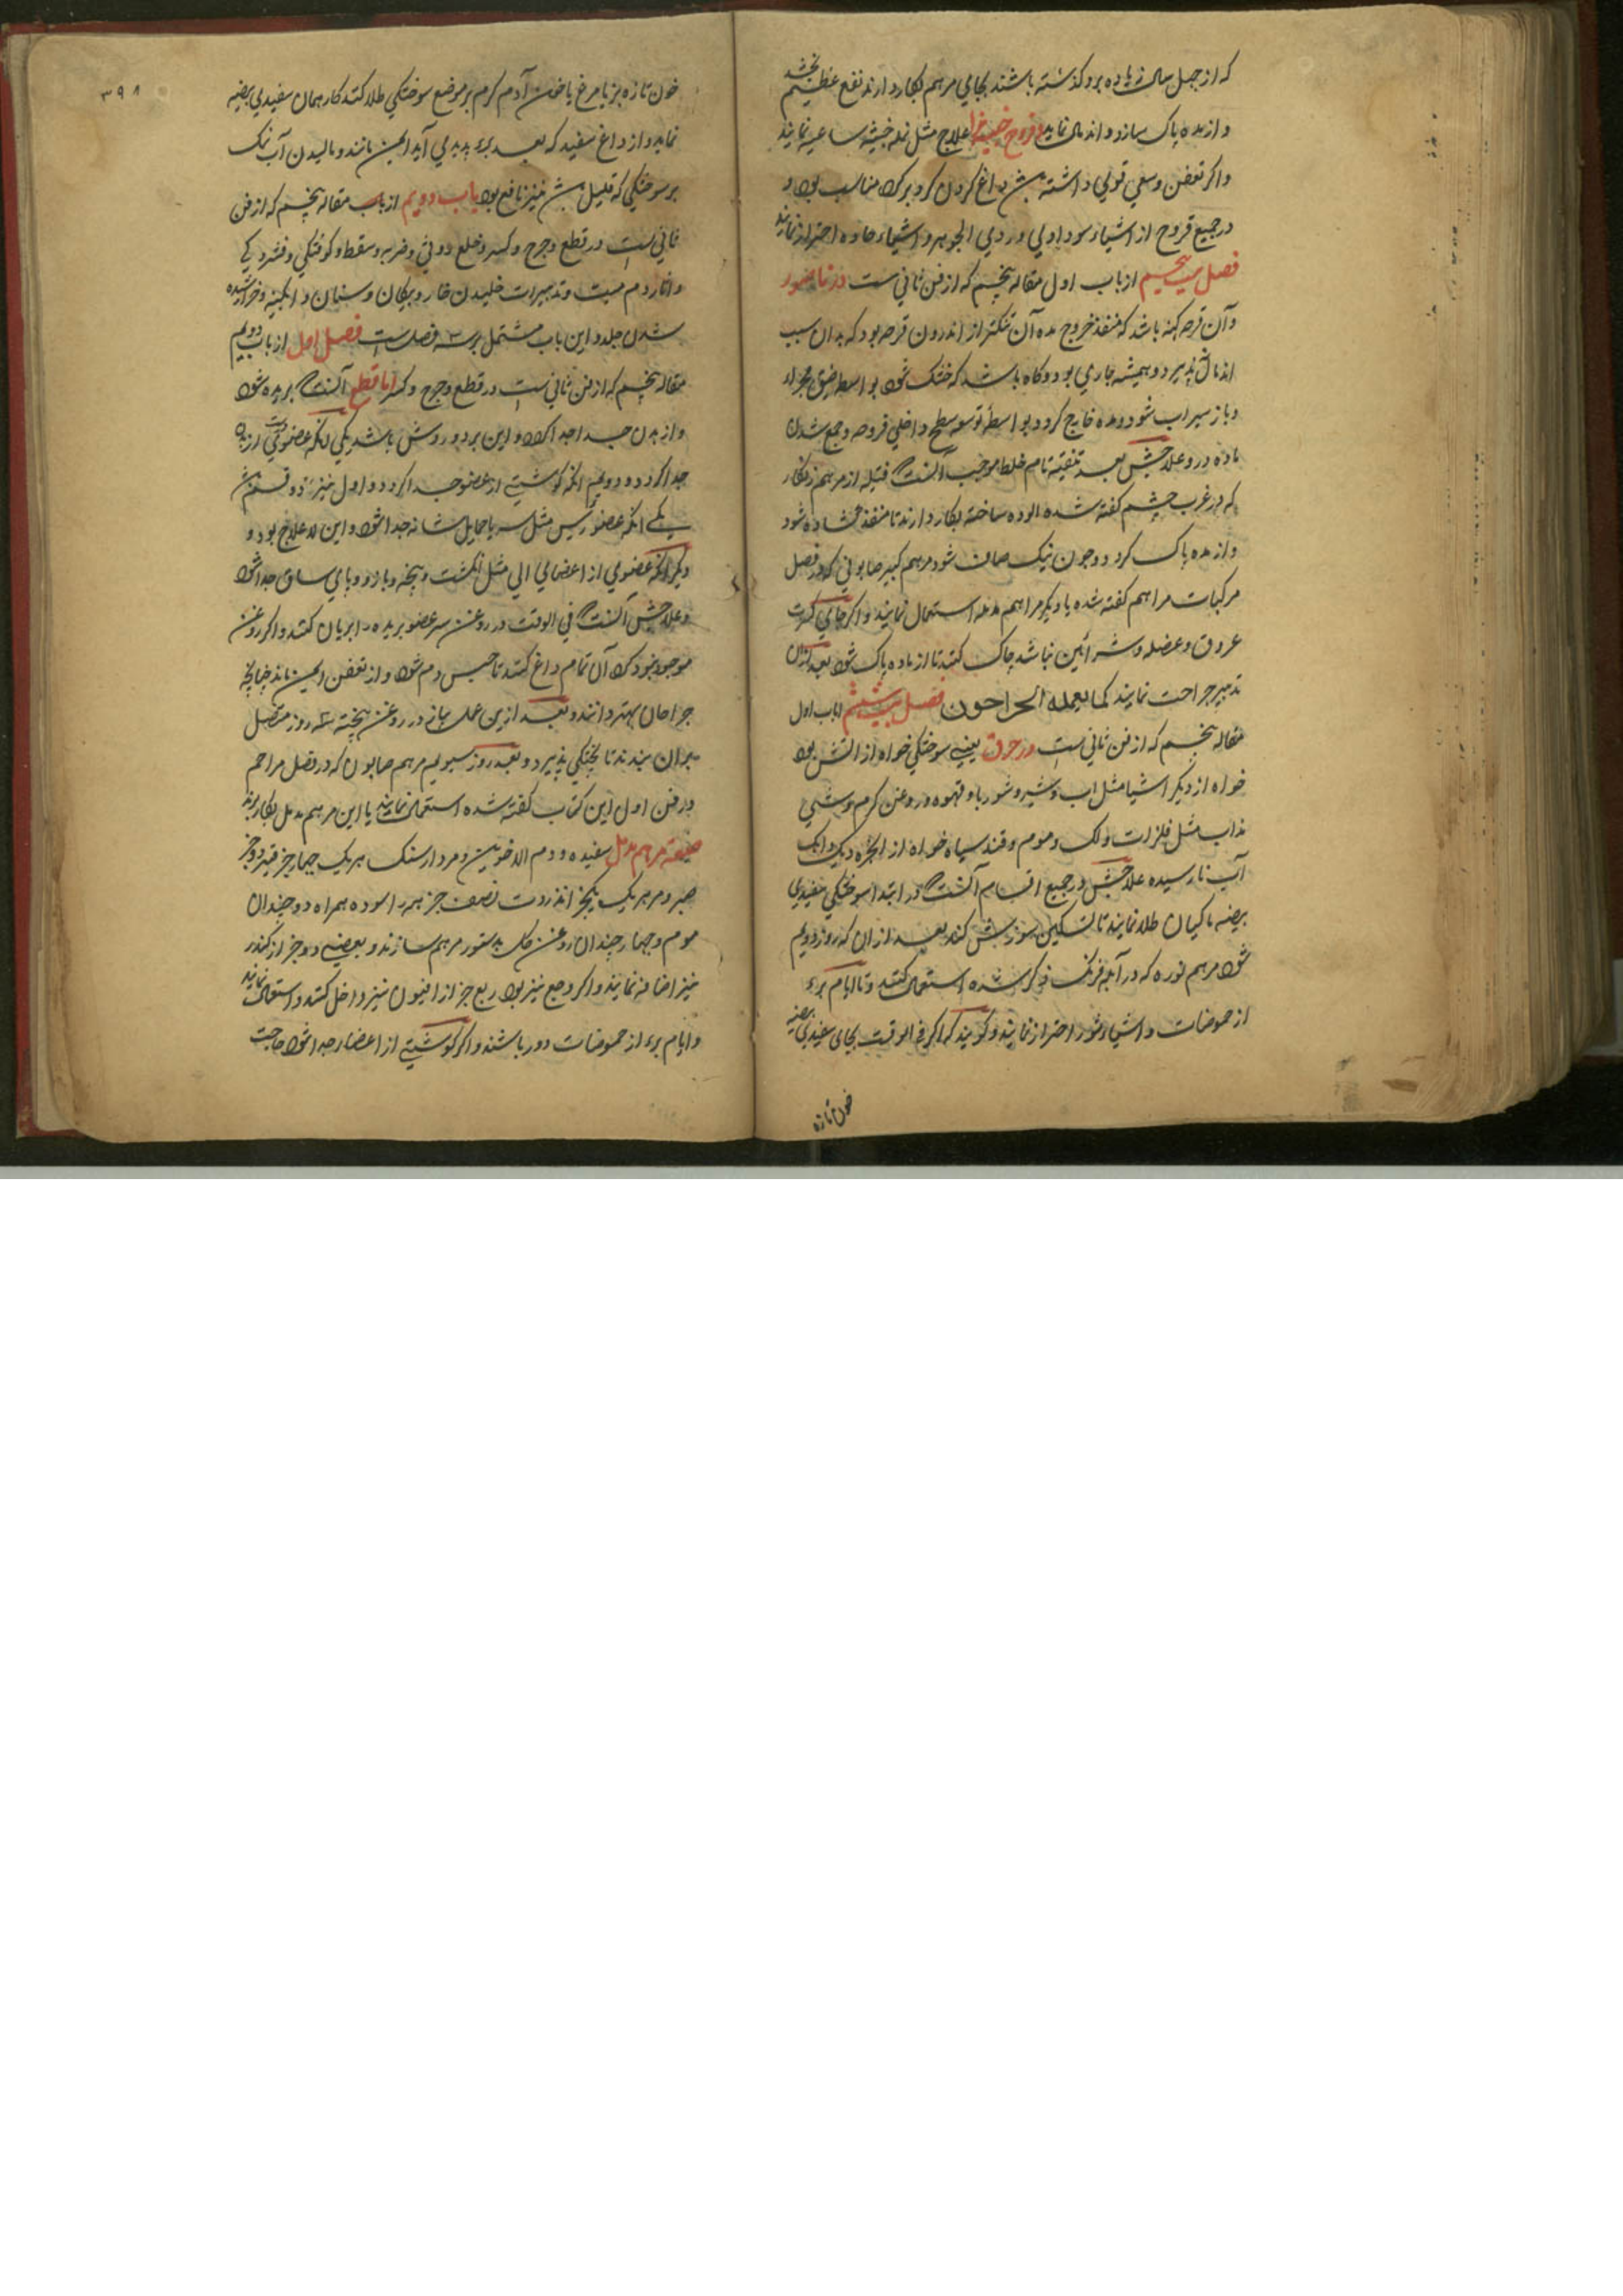 که از چهل سال زیاده برو گذشته باشند بجای مرهم بکار دارند نفع عظیم بخشد
و از مده پاک سازد و اندمال نماید و قروح خبیثه را علاج مثل نمله خبیثه ساعیه نمایند
و اگر تعفن وسعی قوی داشته باشد داغ کردن گرد بر گرد مناسب بود و
در جمیع قروح از اشیاء سوداوی و ردی الجوهر و اشیاء حاده احتراز نمایند
فصل بیست پنجم از باب اول مقاله پنجم که از فن ثانی است در ناصور
و آن قرحه کهنه باشد که منفذ خروج مده آن تنکتر از اندرون قرحه بود که بدان سبب
اندمال نپذیرد و همیشه جاری بود و کاه باشد که خشک شود بواسطه ضیق مجرا
و باز سیراب شود و مده خارج گردد بواسطه توسعه سطح داخلی قرحه و جمع شدن
ماده درو علاجش بعد تنقیه تام خلط موجب آنست که فتیله از مرهم زنگار
که در غرب چشم گفته شده آلوده ساخته بکار دارند تا منفذ گشاده شود
و از مده پاک گردد و چون نیک صاف شود مرهم کبیر صابونی که در فصل
مرکبات مراهم گفته شده یا دیگر مراهم مدمله استعمال نمایند و اگر جای کثرت
عروق و عضله و شرائین نباشد چاک کنند تا از ماده پاک شود بعد ازان
تدبیر جراحت نمایند کما یعمله الجراحون فصل بیست ششم از باب اول
مقاله پنجم که از فن ثانی است در حرق یعنی سوختگی خواه از آتش بود
خواه از دیگر اشیا مثل آب و شیر و شوربا و قهوه و روغن گرم و شئی
مذاب مثل فلزات و لک و موم و قند سیاه خواه از ابخره دیگ و آهک
آب نارسیده علاجش در جمیع اقسام آنست که در ابتدا سوختگی سفیدی
بیضه ماکیان طلا نمایند تا تسکین سوزش کند بعد ازان که روز دویم
شود مرهم نوره که در آبله فرنگ ذکر شده استعمال کنند و تا ایام برء
از حموضات و اشیاء شور احتراز نمایند و گویند که اگر فی الوقت بجای سفیدی بیضه
خون تازه
٣٩٨
خون تازه بز یا مرغ یا خون آدم گرم بر موضع سوختگی طلا کنند کار همان سفیدی بیضه
نماید و از داغ سفید که بعد برء پدید می آید ایمن باشند و مالیدن آب نمک
بر سوختگی که قلیل باشد نیز نافع بود باب دویم از باب مقاله پنجم که از فن
ثانی است در قطع و جرح و کسر و خلع و وثی و ضربه و سقطه و کوفتگی و فشردگی
و آثار دم میت و تدبیرات خلیدن خار و پیکان و سنان و آبگینه و خراشیده
شدن جلد و این باب مشتمل بر سه فصل است فصل اول از باب دویم
مقاله پنجم که از فن ثانی است در قطع و جرح و کسر اما قطع آنست که بریده شود
و از بدن جدا گردد و این بر دو روش باشد یکی آنکه عضوی از بدن
جدا گردد و دویم آنکه گوشتی از عضو جدا گردد و اول نیز بر دو قسم باشد
یکی آنکه عضو رئیس مثل سر یا حمایل شانه جدا شود و این لا علاج بود و
دیگر آنکه عضوی از اعضای آلی مثل انگشت و پنجه و بازو و پای ساق جدا شود
و علاجش آنست که فی الوقت در روغن سر عضو بریده را بریان کنند و اگر روغن
موجود نبود که آن تمام داغ کنند تا حبس دم شود و از تعفن ایمن ماند چنانچه
جراحان بهتر دانند و بعد ازین عمل در روغن پخته سه روز متصل
بران بندند تا پختگی پذیرد و بعد روز سیوم مرهم صابون که در فصل مراهم
در فن اول این کتاب گفته شده استعمال نمایند یا این مرهم مدمل بکار برند
صفت مرهم مدمل سفیده و دم الاخوین و مردارسنگ هر یک چهار جز قنه دو جز
صبر و مر هر یک یکجز انزروت نصف جز همه را سوده همراه دو چندان
موم و چهار چندان روغن گل بدستور مرهم سازند و بعضی دو جز از کندر
نیز اضافه نمایند و اگر وجع نیز بود ربع جز از افیون نیز داخل کنند و استعمال نمایند
و ایام برء از حموضات دور باشند و اگر گوشتی از اعضا جدا شود حاجت